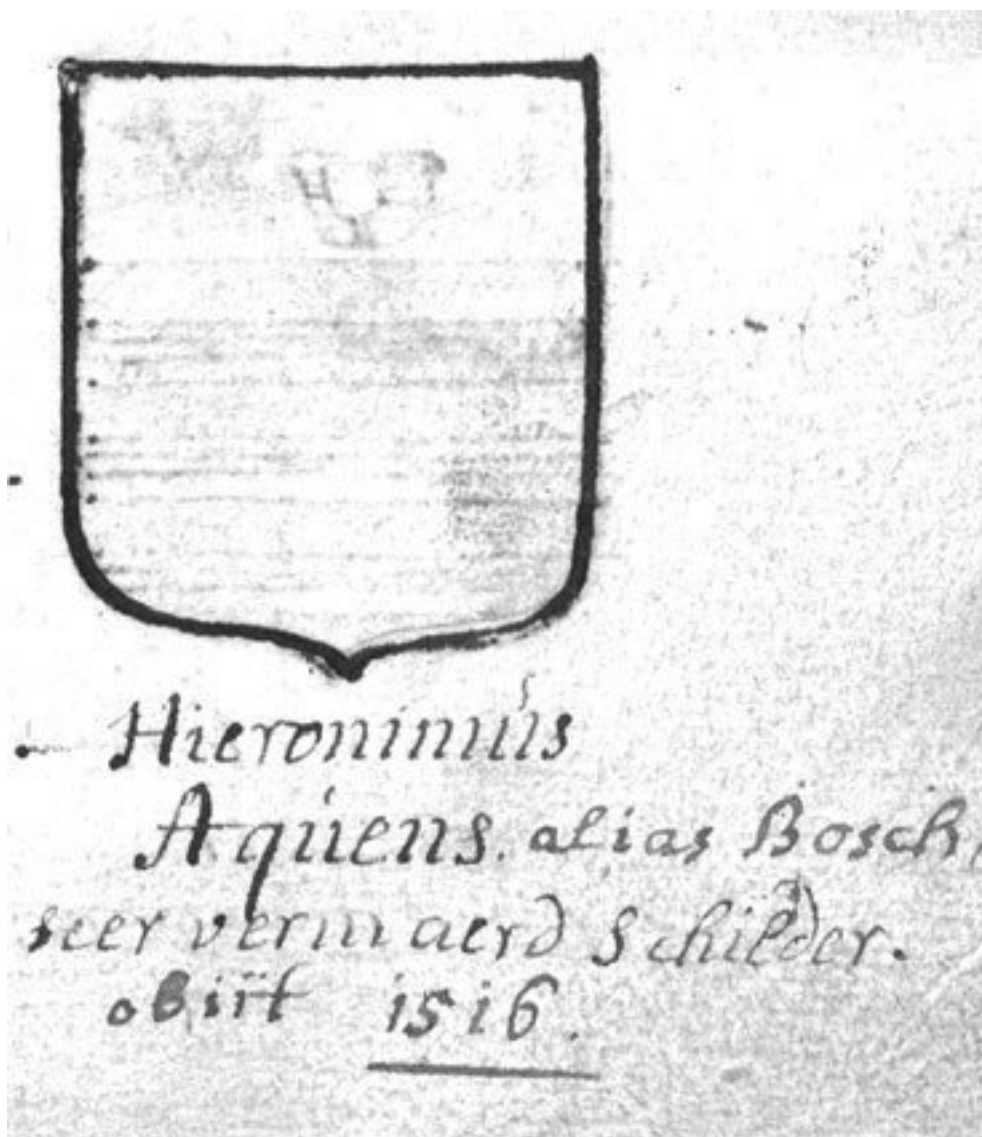 Hieronimus
Aquens. alias Bosch,
seer vermaerd Schilder.
obiit 1516.